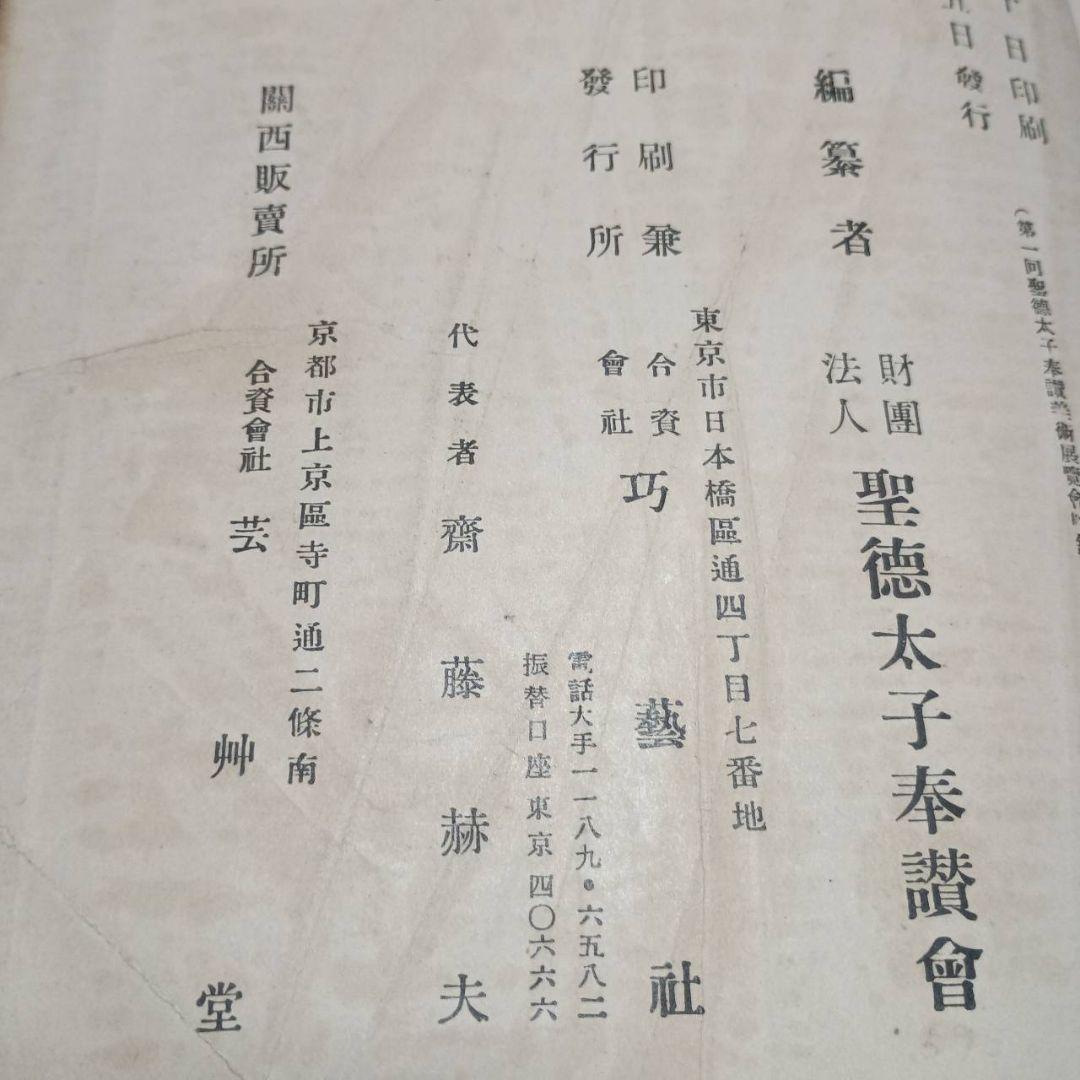 日印刷
五日發行
(第一回聖德太子奉讃美術展覽會
編纂者 財團法人 聖德太子奉讃會
東京市日本橋區通四丁目七番地
印刷兼發行所 合資會社 巧藝社
電話大手一一八九・六五八二
振替口座東京四〇六六六
代表者 齋藤赫夫
京都市上京區寺町通二條南
關西販賣所 合資會社 芸艸堂